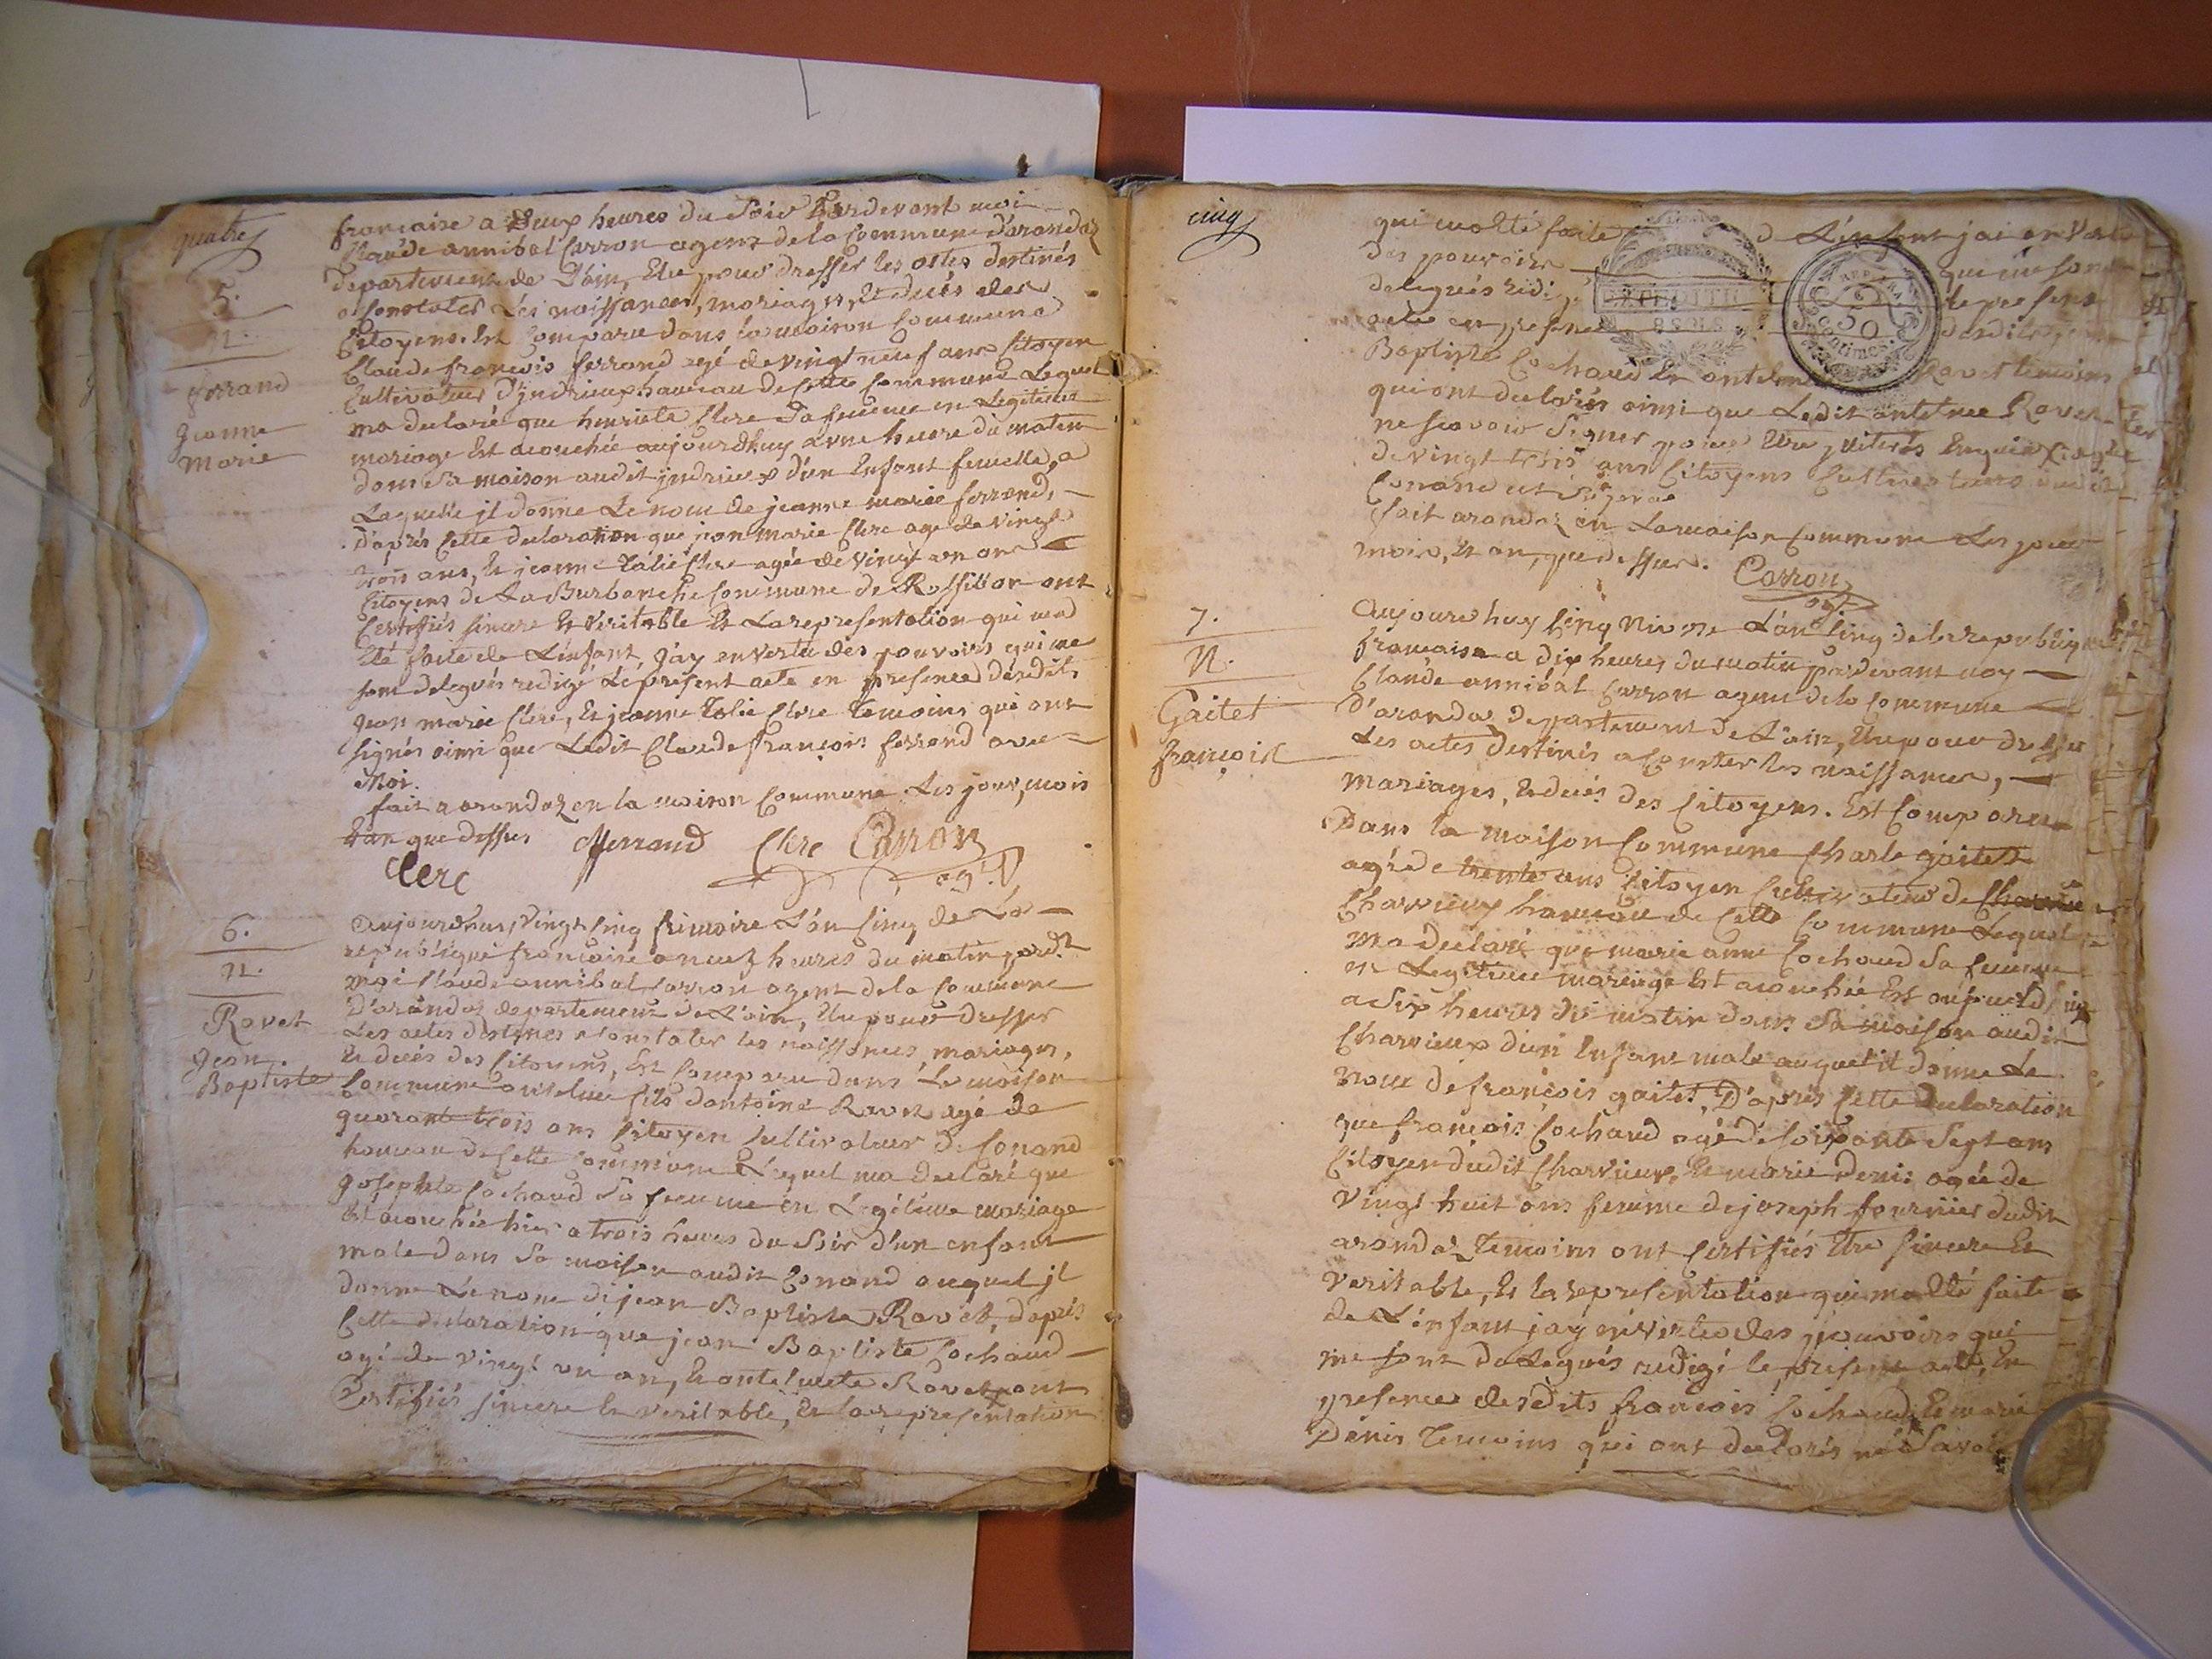 quatre
5.
n.
ferrand
Jeanne
Marie
francaise a deux heures du Soir Pardevant moi
Claude annibal Carron agent de la Commune d'arandaz
departement de L'ain, Elu pour dresser les actes destinés
a Constater Les naissances, mariages, & decés des
Citoyens. Est Comparu dans la maison Commune
Claude françois ferrand agé de vingt neuf ans Citoyen
Cultivateur d'jndrieux hameau de Cette Commune Lequel
ma declaré que henriete Clerc Sa femme en Legitime
mariage Est acouchée aujourdhuy a une heure du matin
dans Sa maison audit jndrieux d'un Enfant femelle, a
Laquelle jl donne Le nom de jeanne marie ferrand,
d'aprés Cette declaration que jean marie Clerc age de vingt
trois ans, & jeanne Clerc agée de vingt un ans
Citoyens de La Burbanche Commune de Rossillon ont
Certifiés sincere & veritable & La representation qui ma
Eté faite de L'enfant, j'ay en vertu des pouvoirs qui me
sont delegués redigé Le present acte en presence desdits
jean marie Clerc, & jeanne Clerc temoins qui ont
signés ainsi que Ledit Claude françois ferrand avec
Moi.
fait a arandaz en la maison Commune Les jour, mois
& an que dessus
ferrand Clerc Carron
Clerc agt
6.
n.
Ravet
Jean
Baptiste
Aujourdhuy Vingt Cinq frimaire L'an Cinq de La
republique francaise a neuf heures du matin pardt
moi Claude annibal Carron agent de la Commune
D'arandaz departement de L'ain, Elu pour dresser
Les actes destinés a Constater les naissances, mariages,
& decés des Citoyens, Est Comparu dans La maison
Commune antelme fils d'antoine Ravet agé de
quarante trois ans Citoyen Cultivateur de Conand
hameau de Cette Commune Lequel ma declaré que
Josephte Cochaud Sa femme en Legitime mariage
Est acouchée hier a trois heures du Soir d'un enfant
male dans Sa maison audit Conand auquel jl
donne Le nom de jean Baptiste Ravet, d'aprés
Cette declaration que jean Baptiste Cochaud
agé de vingt un an, & antelmete Ravet ont
Certifiés sincere & veritable, & la representation
cinq
qui ma Eté faite L'enfant jai en Vertu
des pouvoirs qui me sont
delegués redigé le present
acte en presence desdits
Baptiste Cochaud & Ravet temoins
qui ont declarés ainsi que Ledit antelme Ravet
ne scavoir Signer pour Etre
de vingt trois ans Citoyens Cultivateurs dudit
Conand
fait arandaz en La maison Commune Les jour
mois, & an que dessus. Carron
agt
7.
N.
Gaitet
françois
Aujourdhuy Cinq Nivose L'an Cinq de la republique
francaise a dix heures du matin pardevant moy
Claude annibal Carron agent de la Commune
D'arandas departement de L'ain, Elu pour dresser
Les actes destinés a Conster les naissances,
mariages, & decés des Citoyens. Est Comparu
Dans la maison Commune Charle gaitet
agé de trente ans Citoyen Cultivateur de
Charvieux hameau de Cette Commune Lequel
ma declaré que marie anne Cochaud Sa femme
en Legitime mariage Est acouchée
a Six heures du matin dans Sa maison audit
Charvieux d'un Enfant male auquel il donne Le
nom de françois gaitet, D'aprés Cette declaration
que françois Cochaud agé de soixante Sept ans
Citoyen dudit Charvieux, & marie Denis agée de
vingt huit ans femme de joseph fournier dudit
arandaz temoins ont Certifiés Etre sincere &
veritable, & la representation qui ma Eté faite
de L'enfant jay en vertu des pouvoirs qui
me sont delegués redigé le present acte, En
presence desdits francois Cochaud & marie
Denis temoins qui ont declarés ne Savoir
REP. FRA.
50
centimes.